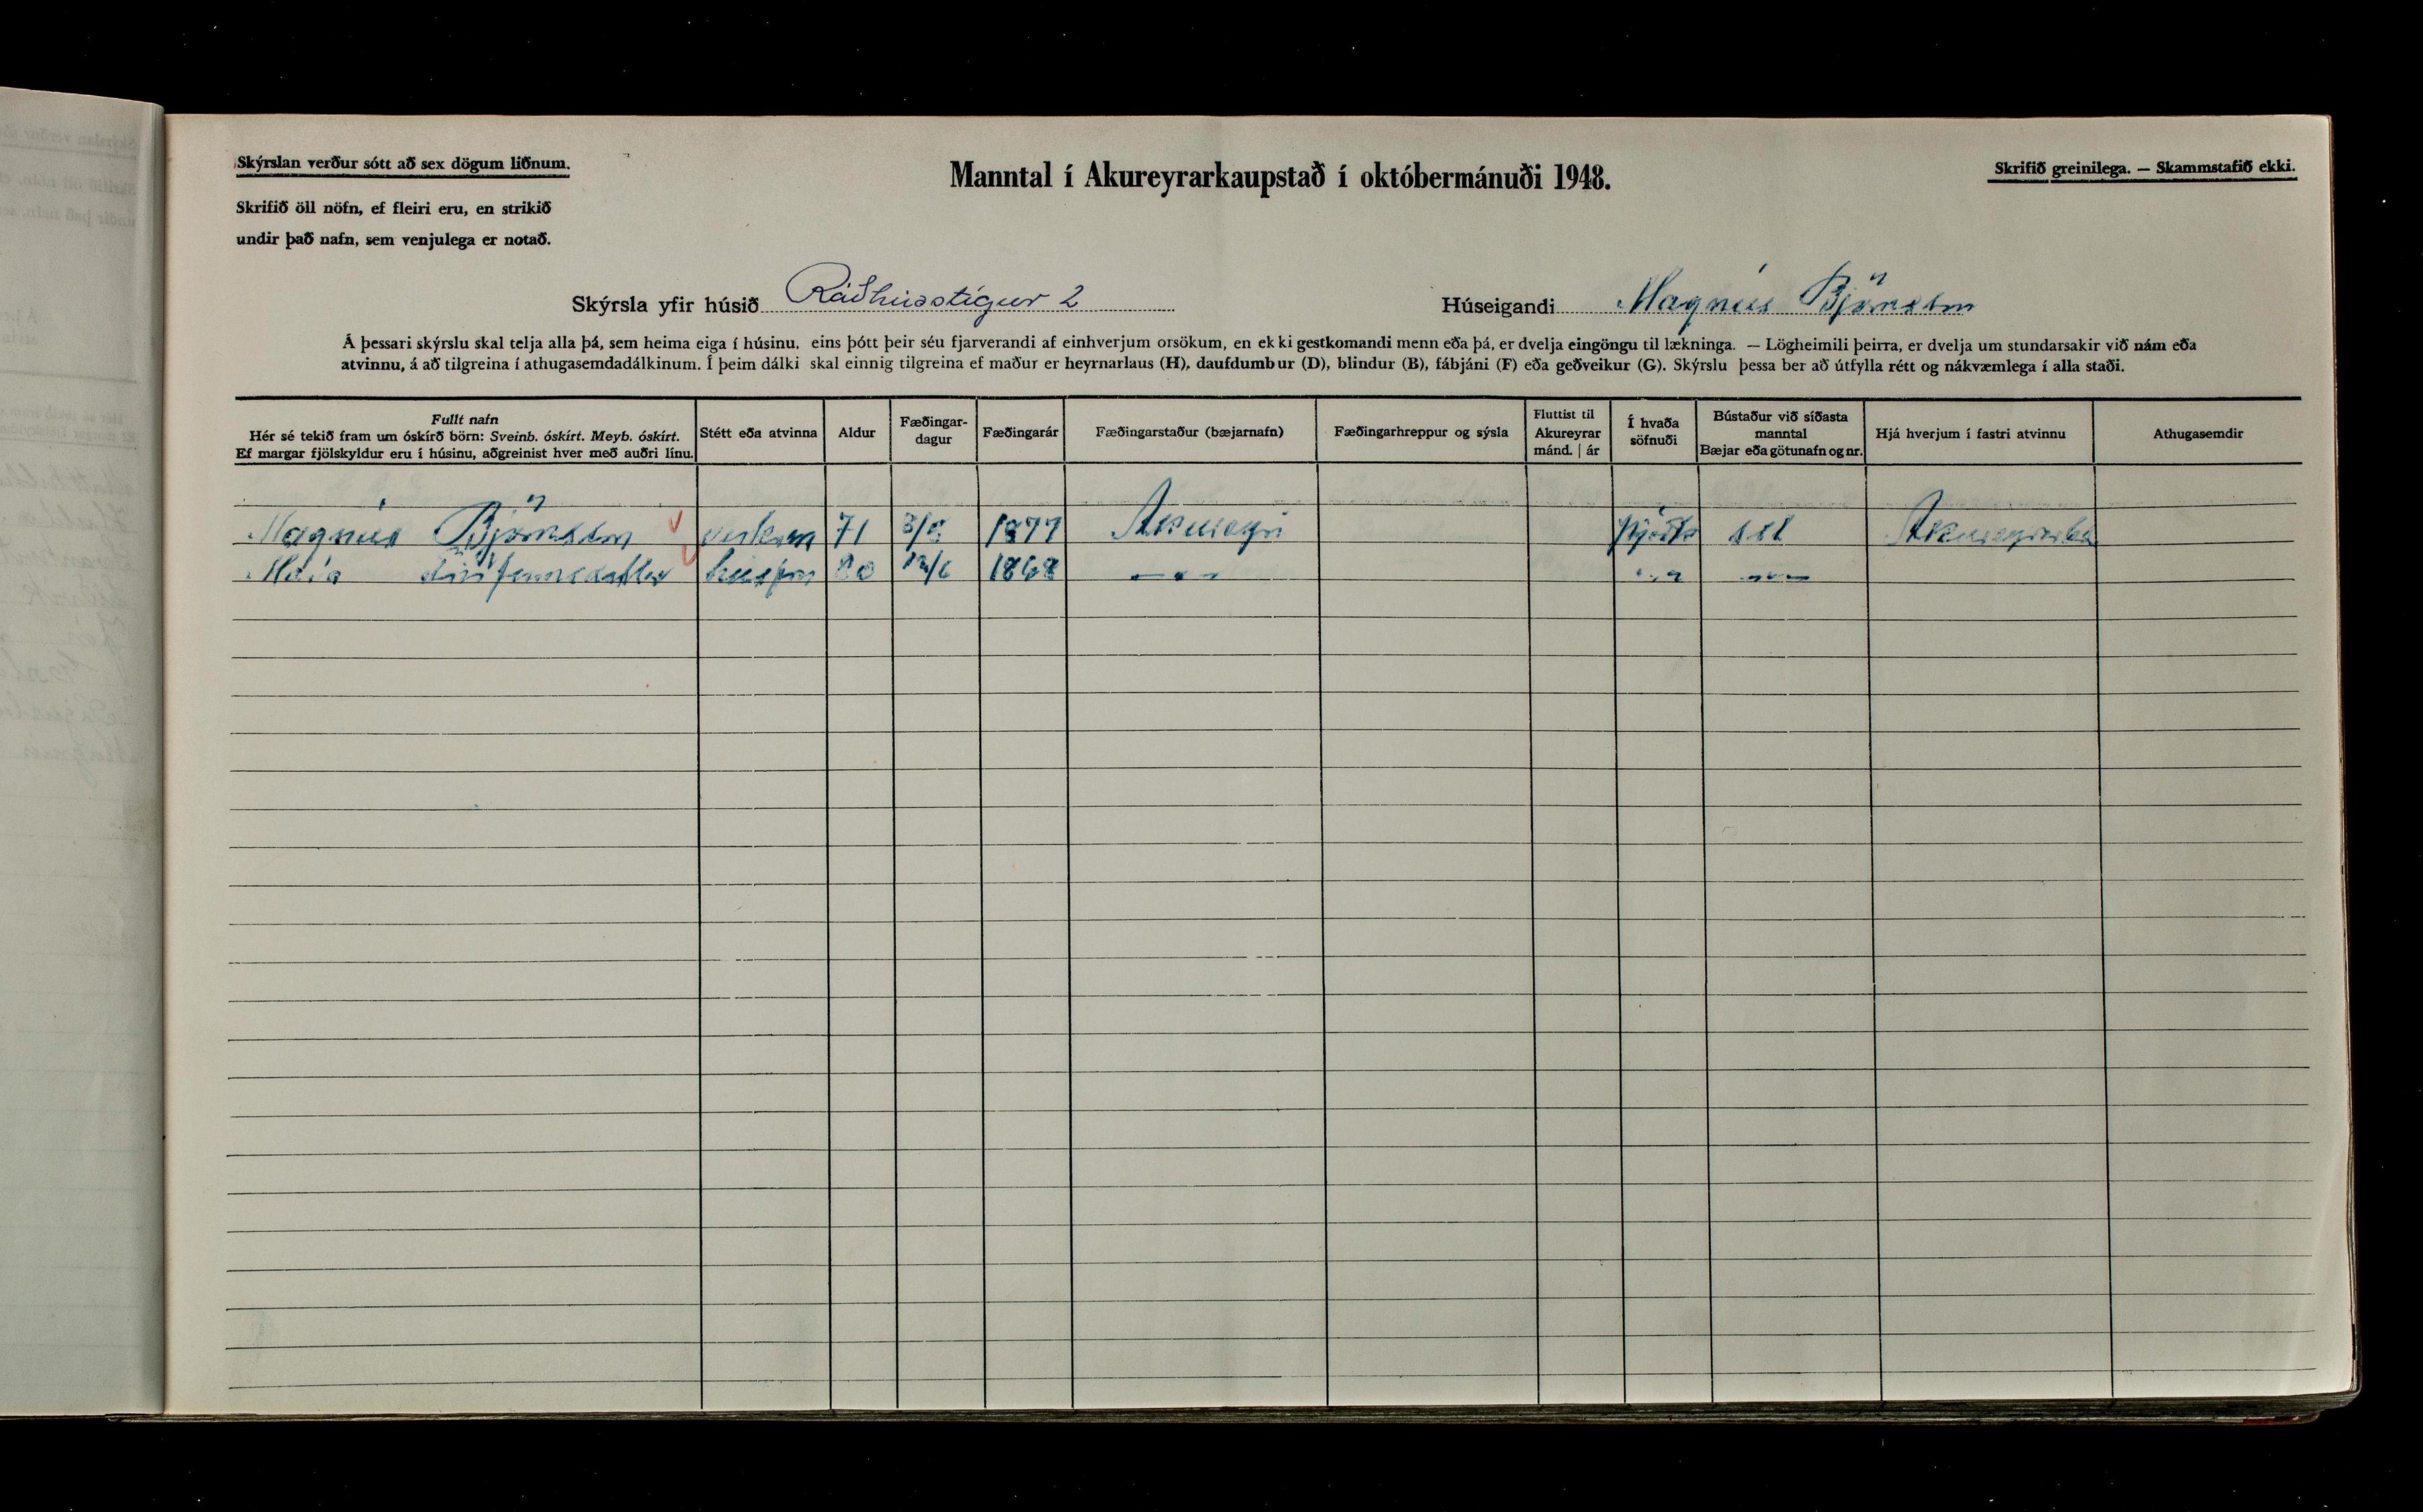 Skýrslan verður sótt að sex dögum liðnum.
Manntal í Akureyrarkaupstað í októbermánuði 1948.
Skrifið greinilega. — Skammstafið ekki.
Skrifið öll nöfn, ef fleiri eru, en strikið
undir það nafn, sem venjulega er notað.
Skýrsla yfir húsið Ráðhússtígur 2
Húseigandi Magnús Björnsson
Á þessari skýrslu skal telja alla þá, sem heima eiga í húsinu, eins þótt þeir séu fjarverandi af einhverjum orsökum, en ekki gestkomandi menn eða þá, er dvelja eingöngu til lækninga. — Lögheimili þeirra, er dvelja um stundarsakir við nám eða
atvinnu, á að tilgreina í athugasemdadálkinum. Í þeim dálki skal einnig tilgreina ef maður er heyrnarlaus (H), daufdumbur (D), blindur (B), fábjáni (F) eða geðveikur (G). Skýrslu þessa ber að útfylla rétt og nákvæmlega í alla staði.
Fullt nafn
Hér sé tekið fram um óskírð börn: Sveinb. óskírt. Meyb. óskírt.
Ef margar fjölskyldur eru í húsinu, aðgreinist hver með auðri línu.
Stétt eða atvinna
Aldur
Fæðingar-
dagur
Fæðingarár
Fæðingarstaður (bæjarnafn)
Fæðingarhreppur og sýsla
Fluttist til
Akureyrar
mánd. | ár
Í hvaða
söfnuði
Bústaður við síðasta
manntal
Bæjar eða götunafn og nr.
Hjá hverjum í fastri atvinnu
Athugasemdir
Magnús Björnsson verkam 71 1877 Akureyri Þjóðk Akureyrarbæ
80 12/6 1868 — „ —